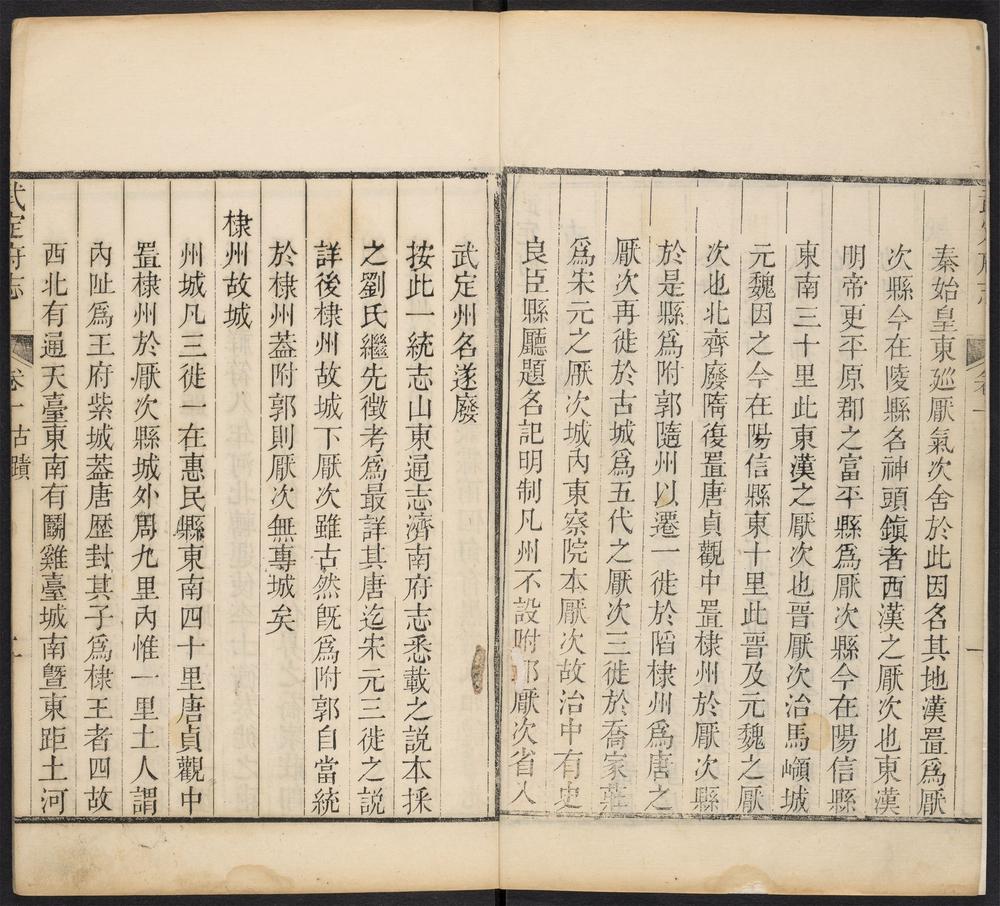 秦始皇東廵厭氣次舍於此因名其地漢置爲厭
次縣今在陵縣名神頭鎮者西漢之厭次也東漢
明帝更平原郡之富平縣爲厭次縣今在陽信縣
東南三十里此東漢之厭次也晉厭次治馬嶺城
元魏因之今在陽信縣東十里此晉及元魏之厭
次也北齊廢隋復置唐貞觀中置棣州於厭次縣
於是縣爲附郭隨州以遷一徙於㴞棣州爲唐之
厭次再徙於古城爲五代之厭次三徙於喬家莊
爲宋元之厭次城內東察院本厭次故治中有史
良臣縣廳題名記明制凡州不設附郭厭次省入
武定州名遂廢
按此一統志山東通志濟南府志悉載之説本採
之劉氏繼先徵考爲最詳其唐迄宋元三徙之説
詳後棣州故城下厭次雖古然旣爲附郭自當統
於棣州葢附郭則厭次無專城矣
棣州故城
州城凡三徙一在惠民縣東南四十里唐貞觀中
置棣州於厭次縣城外周九里內惟一里土人謂
內阯爲王府紫城葢唐歴封其子爲棣王者四故
西北有通天臺東南有鬭雞臺城南曁東距土河
武定府志
卷一 古蹟